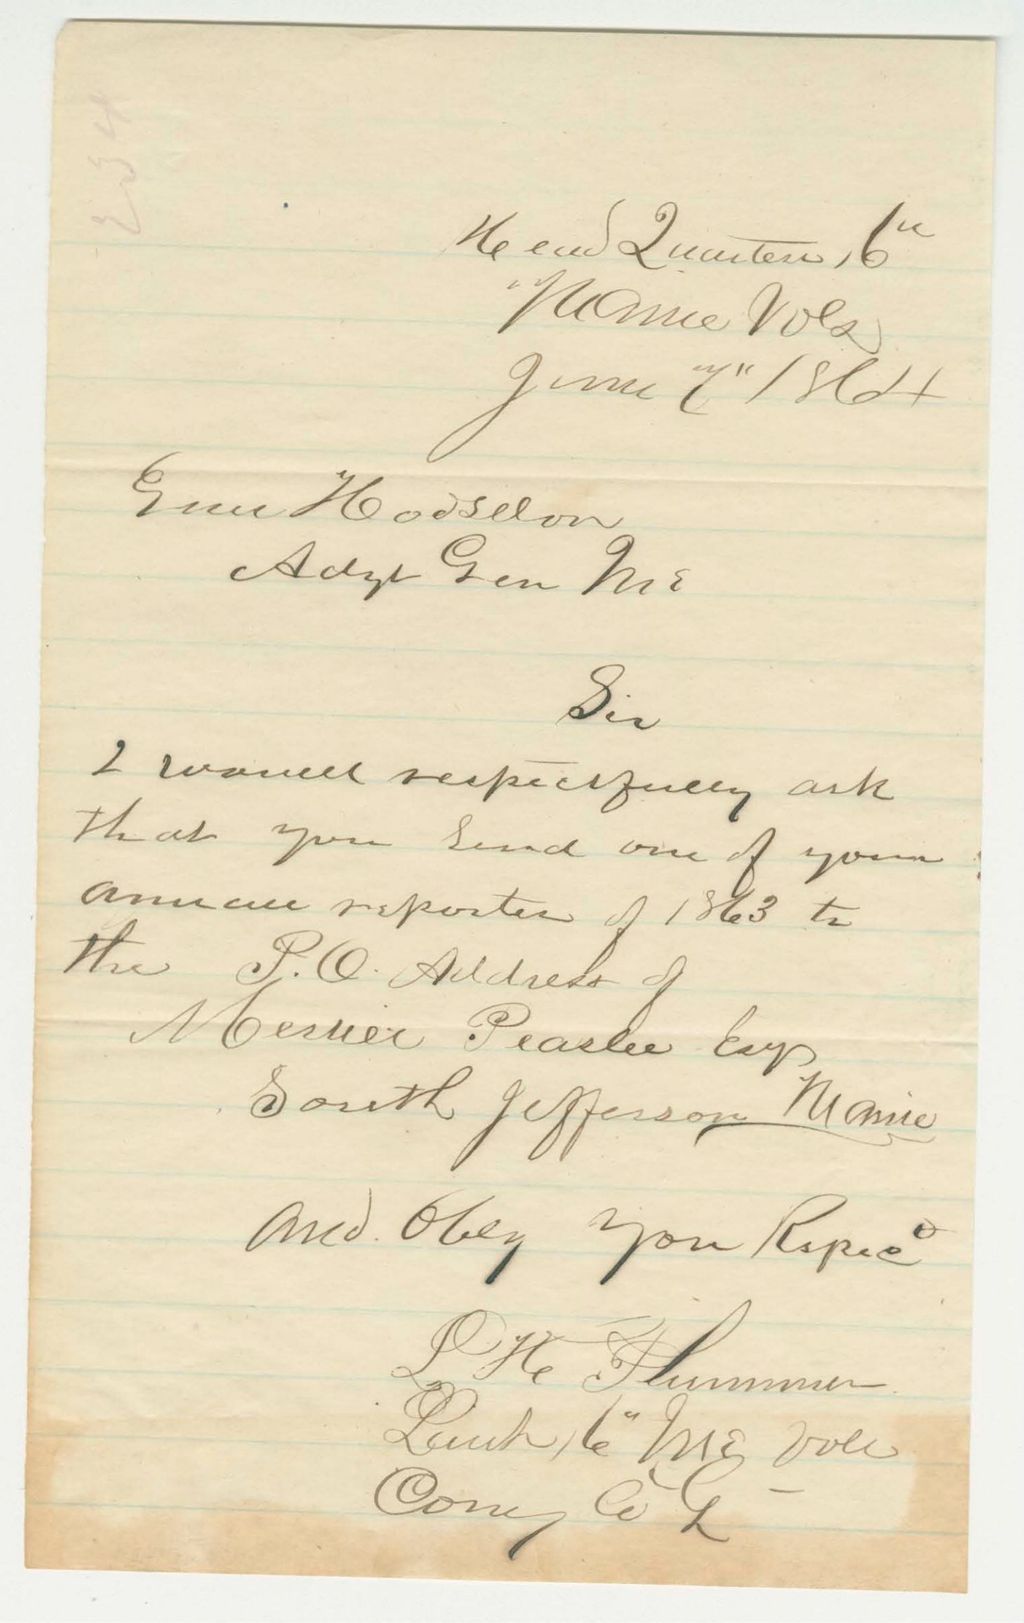 234
Head Quarters, 6"
Maine Vols
June 7" 1864
Genl Hodsdon
Adgt Gen Me
Sir
I would respectfully ask
that you send one of your
annual reporter of 1863 to
the P.O. Address of
Peaslee Esq
South Jefferson Maine
And Obey your Respec
L H Plummer
Lieut, 6" Me Vols
Comg Co G